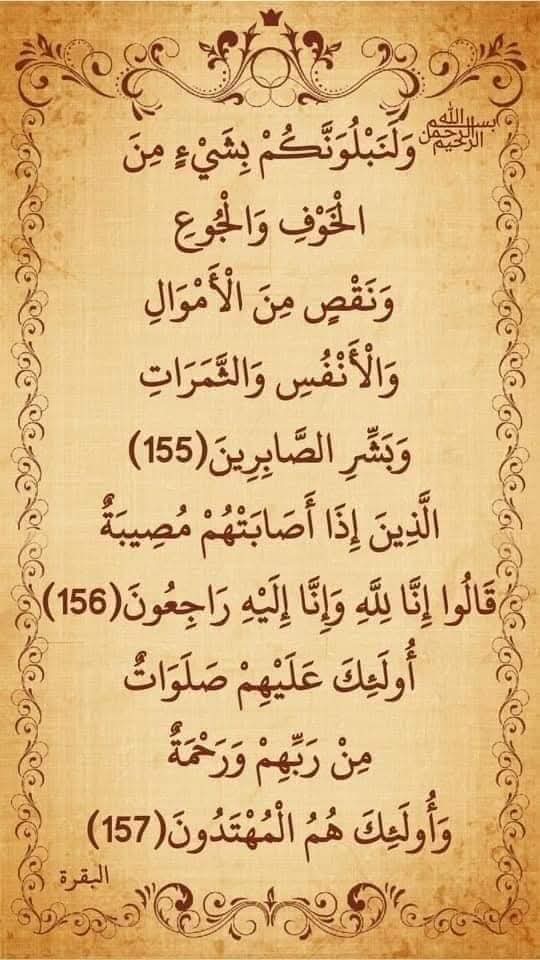 بسم الله الرحمن الرحيم
وَلَنَبْلُوَنَّكُمْ بِشَيْءٍ مِنَ
الْخَوْفِ وَالْجُوعِ
وَنَقْصٍ مِنَ الْأَمْوَالِ
وَالْأَنْفُسِ وَالثَّمَرَاتِ
وَبَشِّرِ الصَّابِرِينَ(155)
الَّذِينَ إِذَا أَصَابَتْهُمْ مُصِيبَةٌ
قَالُوا إِنَّا لِلَّهِ وَإِنَّا إِلَيْهِ رَاجِعُونَ(156)
أُولَئِكَ عَلَيْهِمْ صَلَوَاتٌ
مِنْ رَبِّهِمْ وَرَحْمَةٌ
وَأُولَئِكَ هُمُ الْمُهْتَدُونَ(157)
البقرة